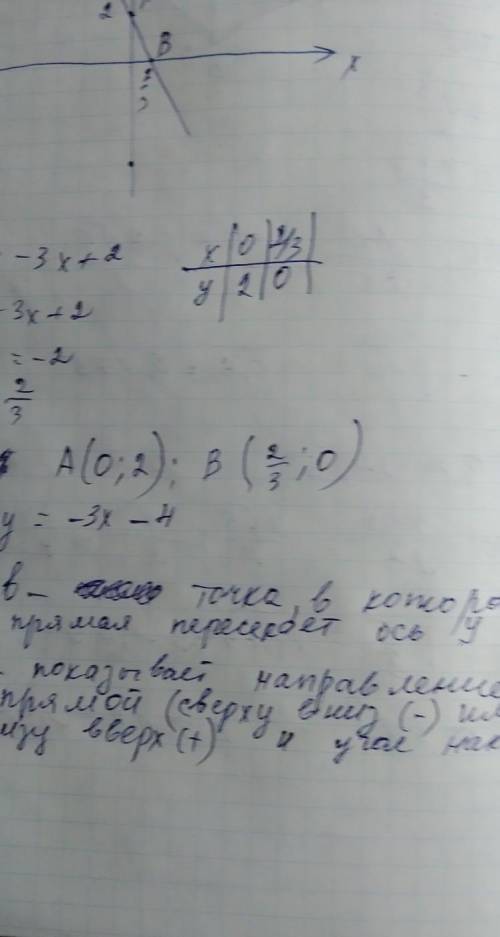 2
B
2
3
x
-3x+2
x | 0 | 2/3 |
y | 2 | 0 |
-3x+2
= -2
2/3
A(0;2); B(2/3;0)
y = -3x - 4
в - точка, в которо
прямая пересекает ось y
показывает направление
прямой (сверху вниз (-) ил
изу вверх (+) и угол нак